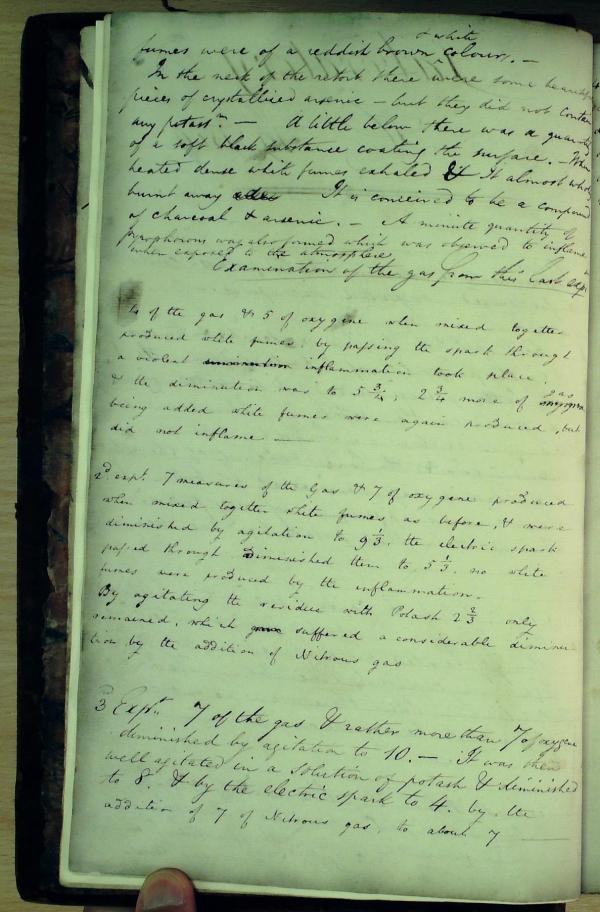 & white
fumes were of a reddish brown colour. —
In the neck of the retort there were some beautiful
pieces of crystallised arsenic — but they did not contain
any potassm. — A little below there was a quantity
of a soft black substance coating the surface. — When
heated dense white fumes exhaled & it almost wholly
burnt away It is conceived to be a compound
of charcoal & arsenic. — A minute quantity of
pyrophorous was also formed which was observed to inflame
when exposed to the atmosphere
Examination of the gas from this last expt
4 of the gas & 5 of oxygene when mixed together
produced white fumes. by passing the spark through
a violent inflammation took place.
& the diminution was to 5 3/4, 2 3/4 more of gas
being added white fumes were again produced, but
did not inflame —
2d. expt. 7 measures of the Gas & 7 of oxygene produced
when mixed together white fumes as before, & were
diminished by agitation to 9 2/3. the electric spark
passed through diminished them to 5 1/3. no white
fumes were produced by the inflammation.
By agitating the residue with Potash 2 2/3 only
remained, which suffered a considerable diminu
tion by the addition of Nitrous gas
3d Exptn. 7 of the gas & rather more than 7 of oxygene
diminished by agitation to 10. — It was then
well agitated in a solution of potash & diminished
to 8. & by the electric spark to 4. by the
addition of 7 of Nitrous gas, to about 7 —